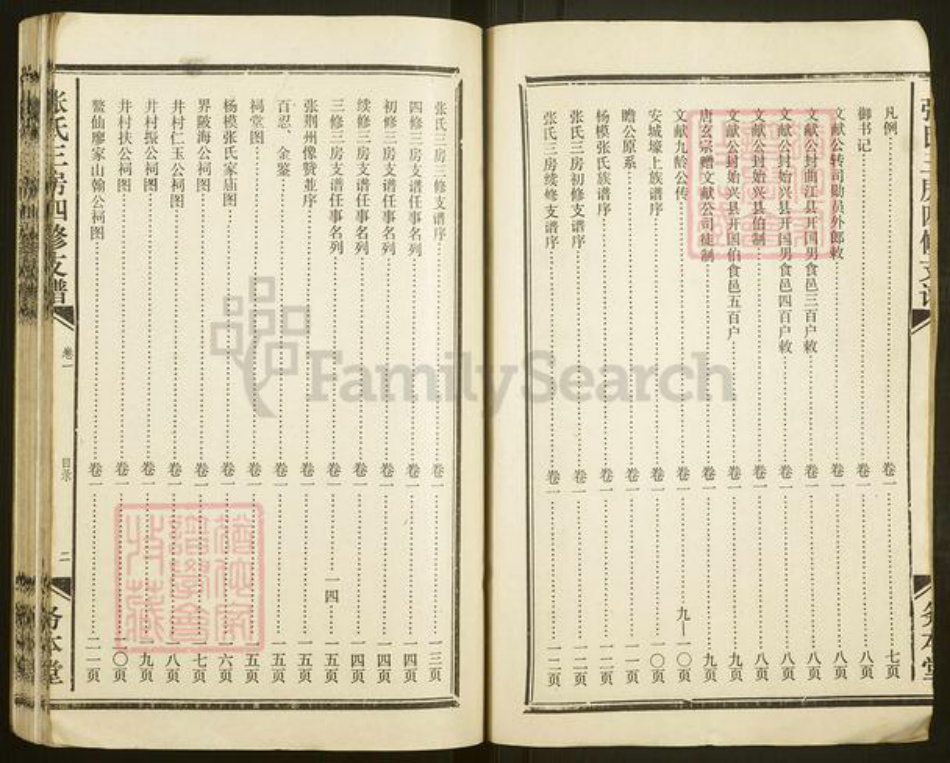 凡例 卷一 七页
御书记 卷一 八页
文献公转司勋员外郎敕 卷一 八页
文献公封曲江县开国男食邑三百户敕 卷一 八页
文献公封始兴县开国男食邑四百户敕 卷一 八页
文献公封始兴县伯制 卷一 八页
文献公封始兴县开国伯食邑五百户 卷一 九页
唐玄宗赠文献公司徒制 卷一 九页
文献九龄公传 卷一 九—一〇页
安城壕上族谱序 卷一 一〇页
瞻公原系 卷一 一一页
杨模张氏族谱序 卷一 一一页
张氏三房初修支谱序 卷一 一二页
张氏三房续修支谱序 卷一 一二页
务本堂
张氏三房三修支谱序 卷一 一三页
四修三房支谱任事名列 卷一 一四页
初修三房支谱任事名列 卷一 一四页
续修三房支谱任事名列 卷一 一四页
三修三房支谱任事名列 卷一 一四 一五页
张荆州像赞並序 卷一 一五页
百忍、金鉴 卷一 一五页
祠堂图 卷一 一五页
杨模张氏家庙图 卷一 一六页
界陂海公祠图 卷一 一七页
井村仁玉公祠图 卷一 一八页
井村振公祠图 卷一 一九页
井村扶公祠图 卷一 二〇页
鳌仙廖家山翰公祠图 卷一 二一页
张氏三房四修支谱
卷一
目录
二
务本堂
FamilySearch